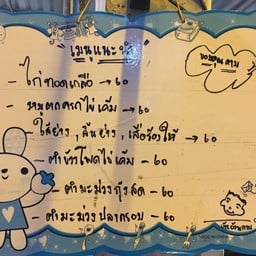 "เมนูแนะนำ"
ขอบคุณตาม
- ไก่ทอดเกลือ → 60
- หมกครกไข่เค็ม → 60
- ไส้ย่าง, ลิ้นย่าง, เสือร้องไห้ → 60
- ตำข้าวโพดไข่เค็ม - 60
- ตำมะม่วงกุ้งสด - 60
- ตำมะม่วงปลากรอบ - 60